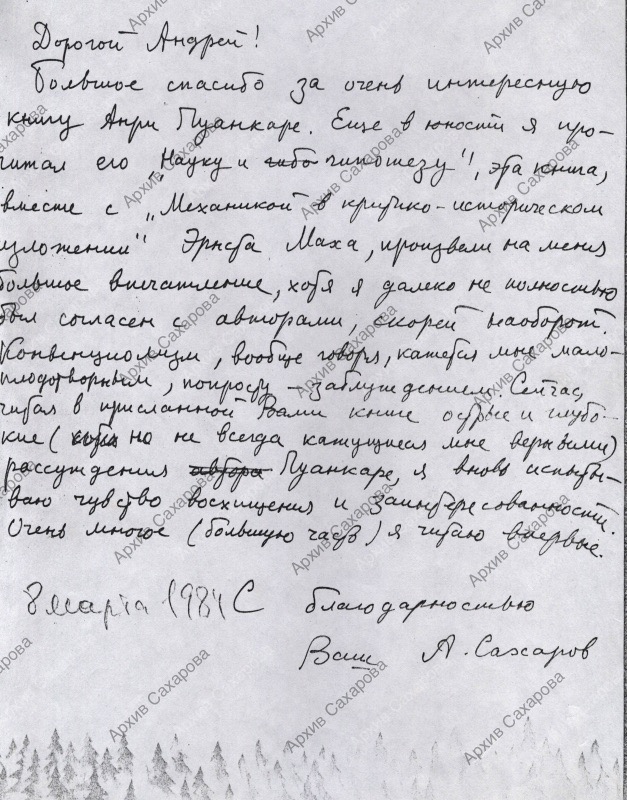 Дорогой Андрей!
Большое спасибо за очень интересную
книгу Анри Пуанкаре. Еще в юности я про-
читал его „Науку и гипотезу", эта книга,
вместе с „Механикой в критико-историческом
изложении" Эрнста Маха, произвели на меня
большое впечатление, хотя я далеко не полностью
был согласен с авторами, скорей наоборот.
Конвенциолизм, вообще говоря, кажется мне мало-
плодотворным, попросту – заблуждением. Сейчас,
читая в присланной Вами книге острые и глубо-
кие (но не всегда кажущиеся мне верными)
рассуждения автора Пуанкаре, я вновь испыты-
ваю чувство восхищения и заинтересованности.
Очень многое (большую часть) я читаю впервые.
8 марта 1984 С благодарностью
Ваш А. Сахаров
Архив Сахарова